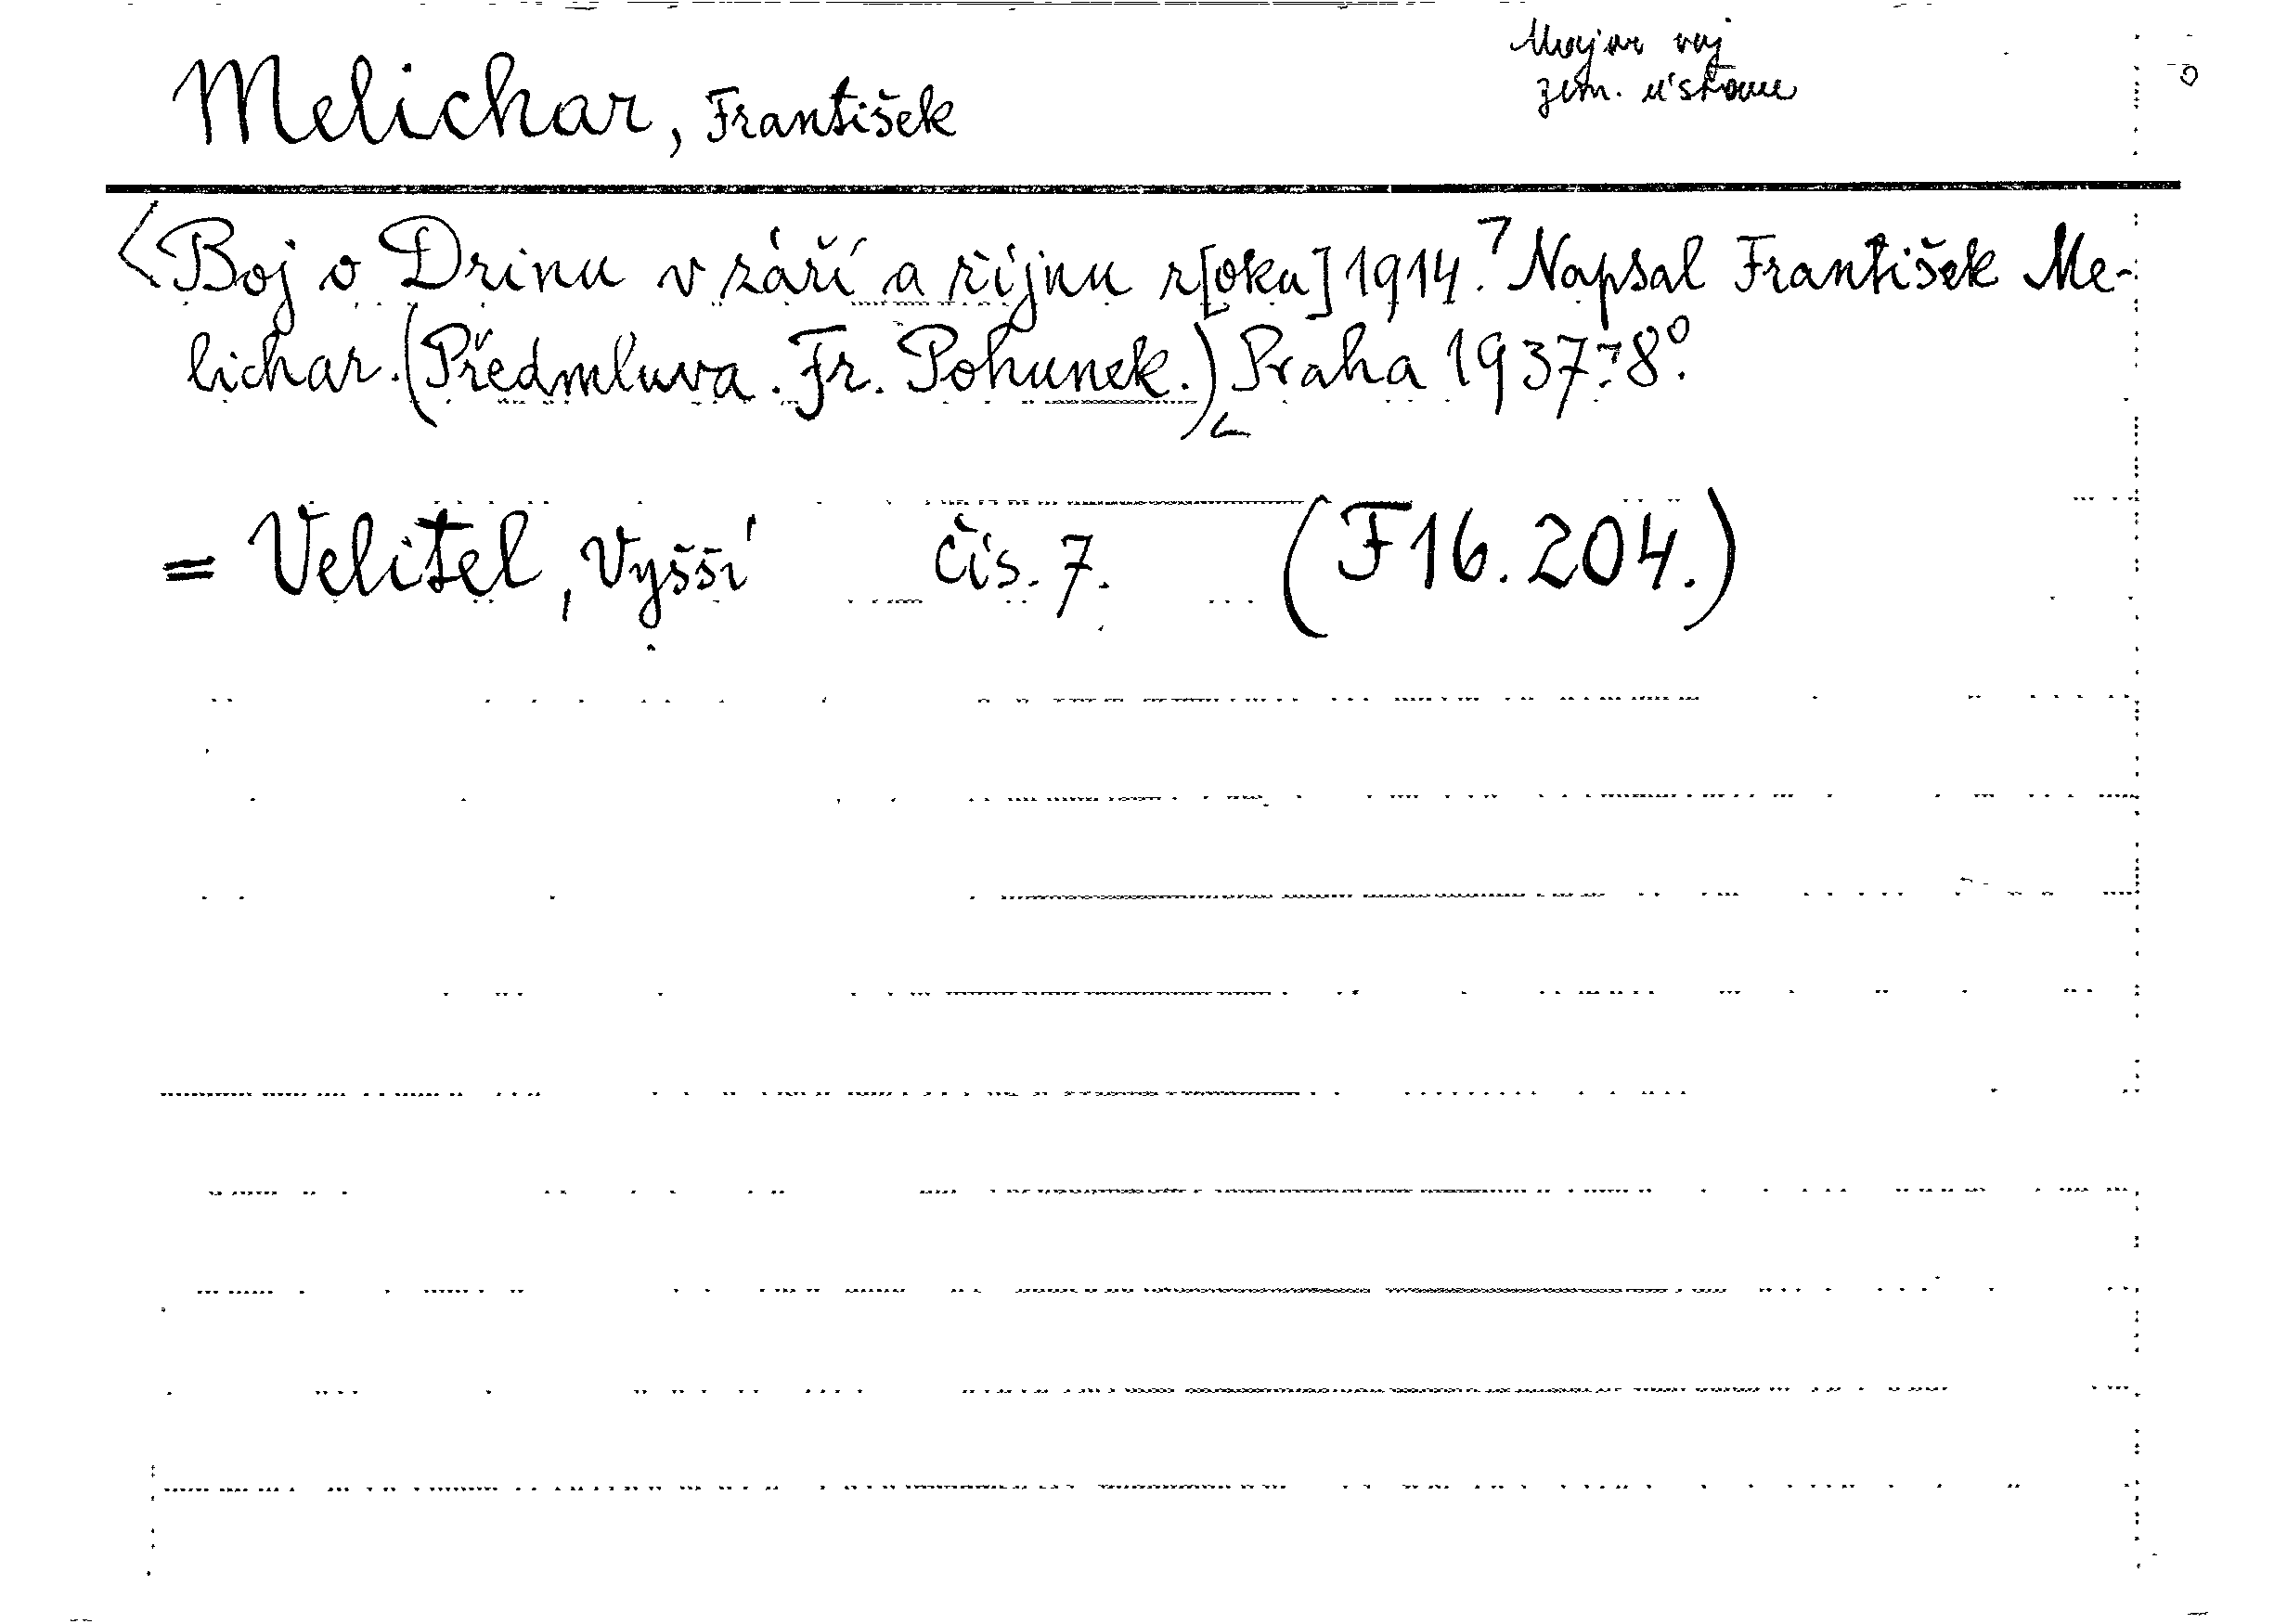 Major voj
zem. ústavu
Melichar, František
Boj o Drinu v září a říjnu r[oku] 1914. Napsal František Me-
lichar. (Předmluva. Fr. Pohunek.) Praha 1937. 8°.
= Velitel, Vyšší čís. 7. (F16.204.)